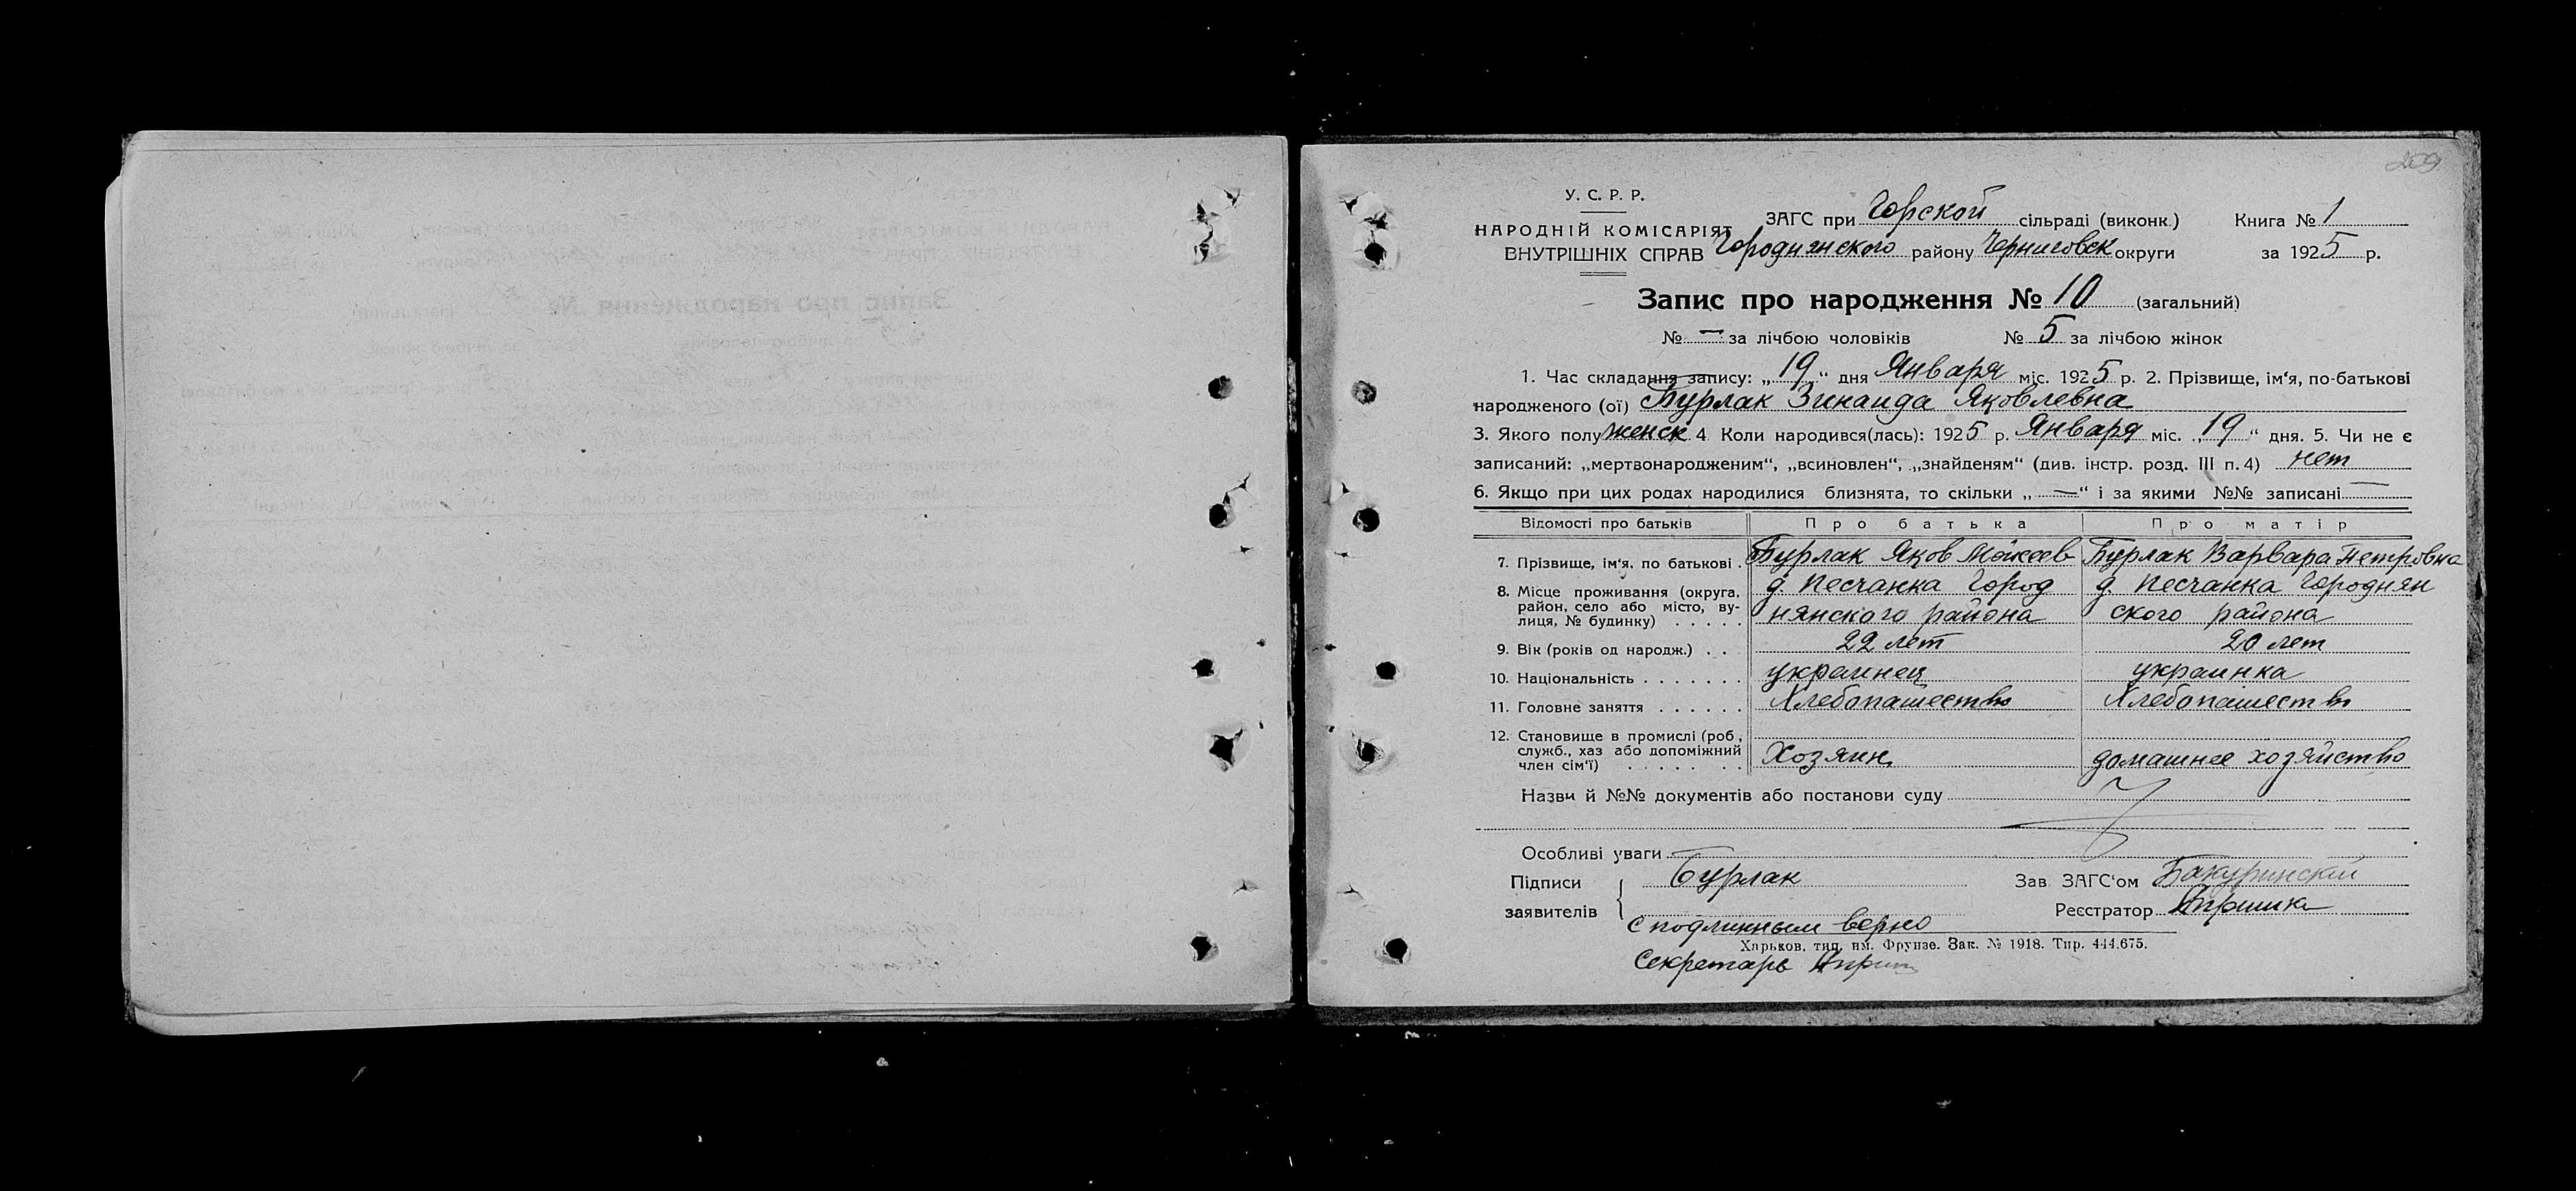 209
У. С. Р. Р.
НАРОДНІЙ КОМІСАРІЯТ
ВНУТРІШНІХ СПРАВ
ЗАГС при Горской сільраді (виконк.) Книга № 1
Городнянского району Черниговск округи за 1925 р.
Запис про народження № 10 (загальний)
№ — за лічбою чоловіків № 5 за лічбою жінок
1. Час складання запису: „19“ дня Января міс. 1925 р. 2. Прізвище, ім‘я, по-батькові
народженого (ої) Бурлак Зинаида Яковлевна
3. Якого полу женск 4 Коли народився(лась): 1925 р. Января міс. „19“ дня. 5. Чи не є
записаний: „мертвонародженим“, „всиновлен“, „знайденям“ (див. інстр. розд. III п. 4) нет
6. Якщо при цих родах народилися близнята, то скільки „—“ і за якими №№ записані —
Відомості про батьків Про батька Про матір
7. Прізвище, ім‘я, по батькові . Бурлак Яков Бурлак Варвара Петровна
8. Місце проживання (округа, д. Песчанка Город д. Песчанка Городнян
район, село або місто, ву-
лиця, № будинку) . . . . . нянского района ского района
9. Вік (років од народж.) . . 22 лет 20 лет
10. Національність . . . . . . . украинец украинка
11. Головне заняття . . . . . . Хлебопашество Хлебопашество
12. Становище в промислі (роб.,
служб., хаз або допоміжний
член сім‘ї) . . . . . . . . Хозяин домашнее хозяйство
Назви й №№ документів або постанови суду
Особливі уваги
Підписи Бурлак Зав ЗАГС‘ом
заявителів Реєстратор
С подлинным верно
Харьков, тип. им. Фрунзе. Зак. № 1918. Тир. 444.675.
Секретарь